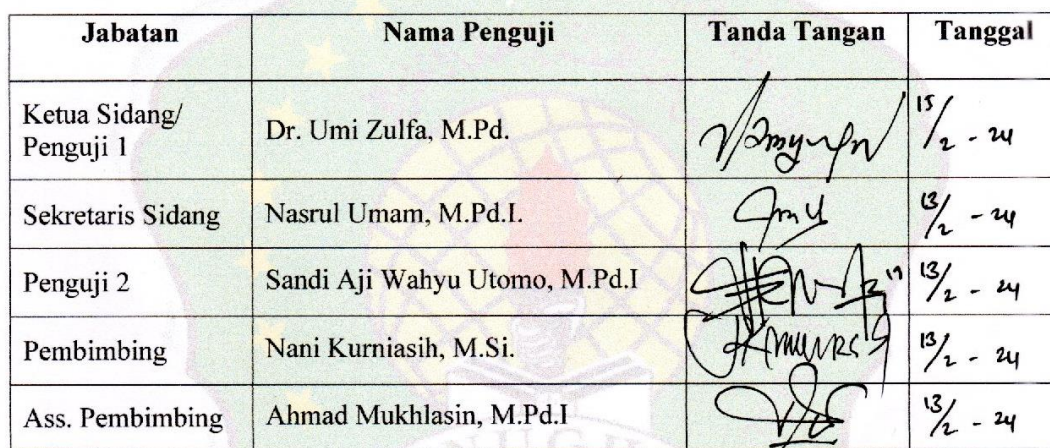 Jabatan Nama Penguji Tanda Tangan Tanggal
Ketua Sidang/
Penguji 1 Dr. Umi Zulfa, M.Pd. 15/2 - 24
Sekretaris Sidang Nasrul Umam, M.Pd.I. 13/2 - 24
Penguji 2 Sandi Aji Wahyu Utomo, M.Pd.I 13/2 - 24
Pembimbing Nani Kurniasih, M.Si. 13/2 - 24
Ass. Pembimbing Ahmad Mukhlasin, M.Pd.I 13/2 - 24